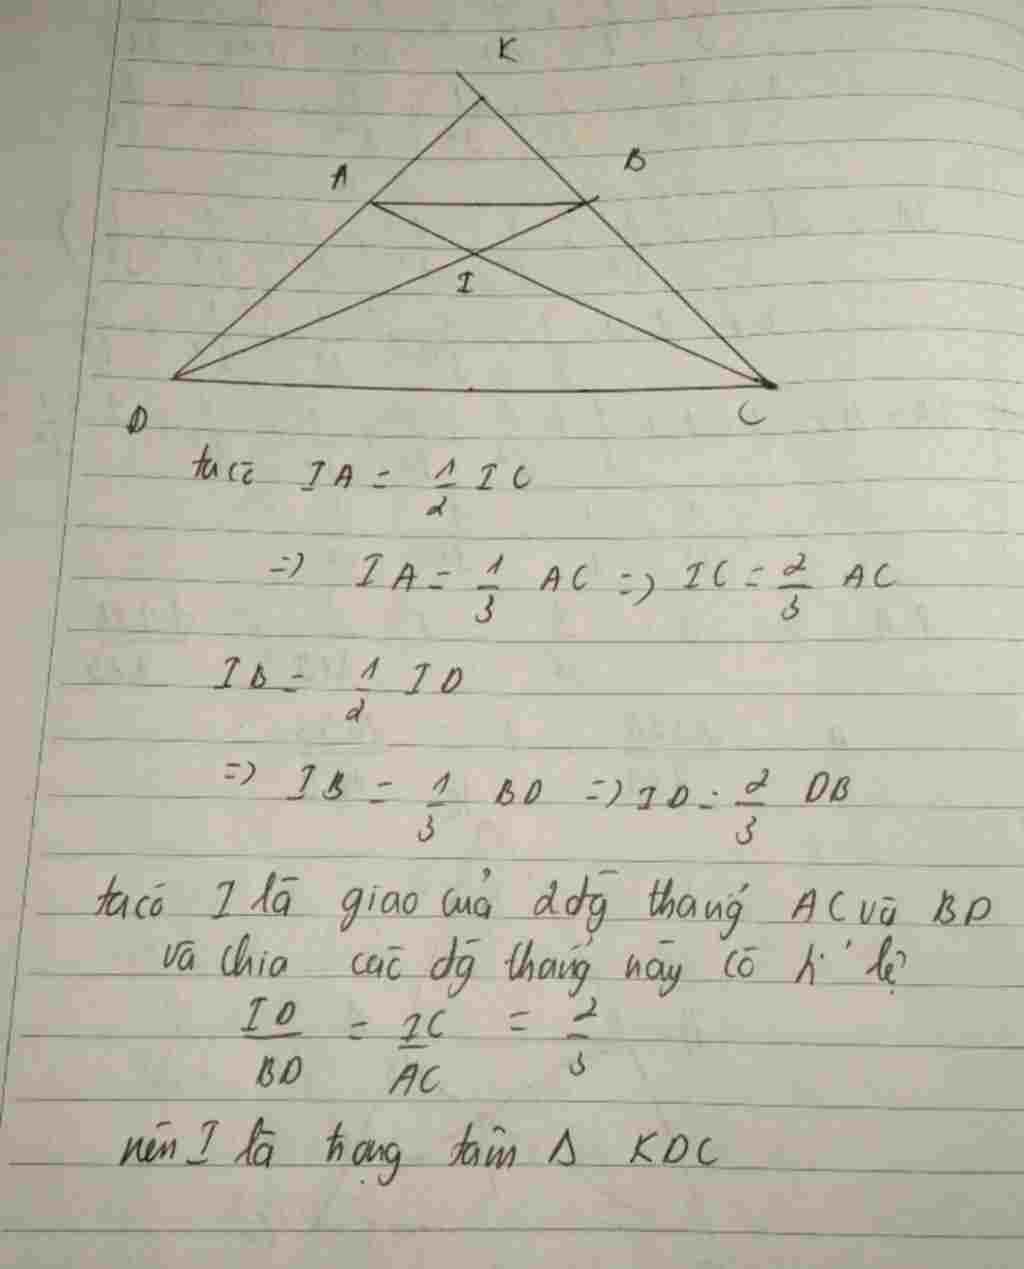 K
A
B
I
D
C
ta có IA = 1/2 IC
=> IA = 1/3 AC => IC = 2/3 AC
IB = 1/2 ID
=> IB = 1/3 BD => ID = 2/3 DB
ta có I là giao của 2 đg thẳng AC và BD
và chia các đg thẳng này có tỉ lệ
ID/BD = IC/AC = 2/3
nên I là trọng tâm Δ KDC